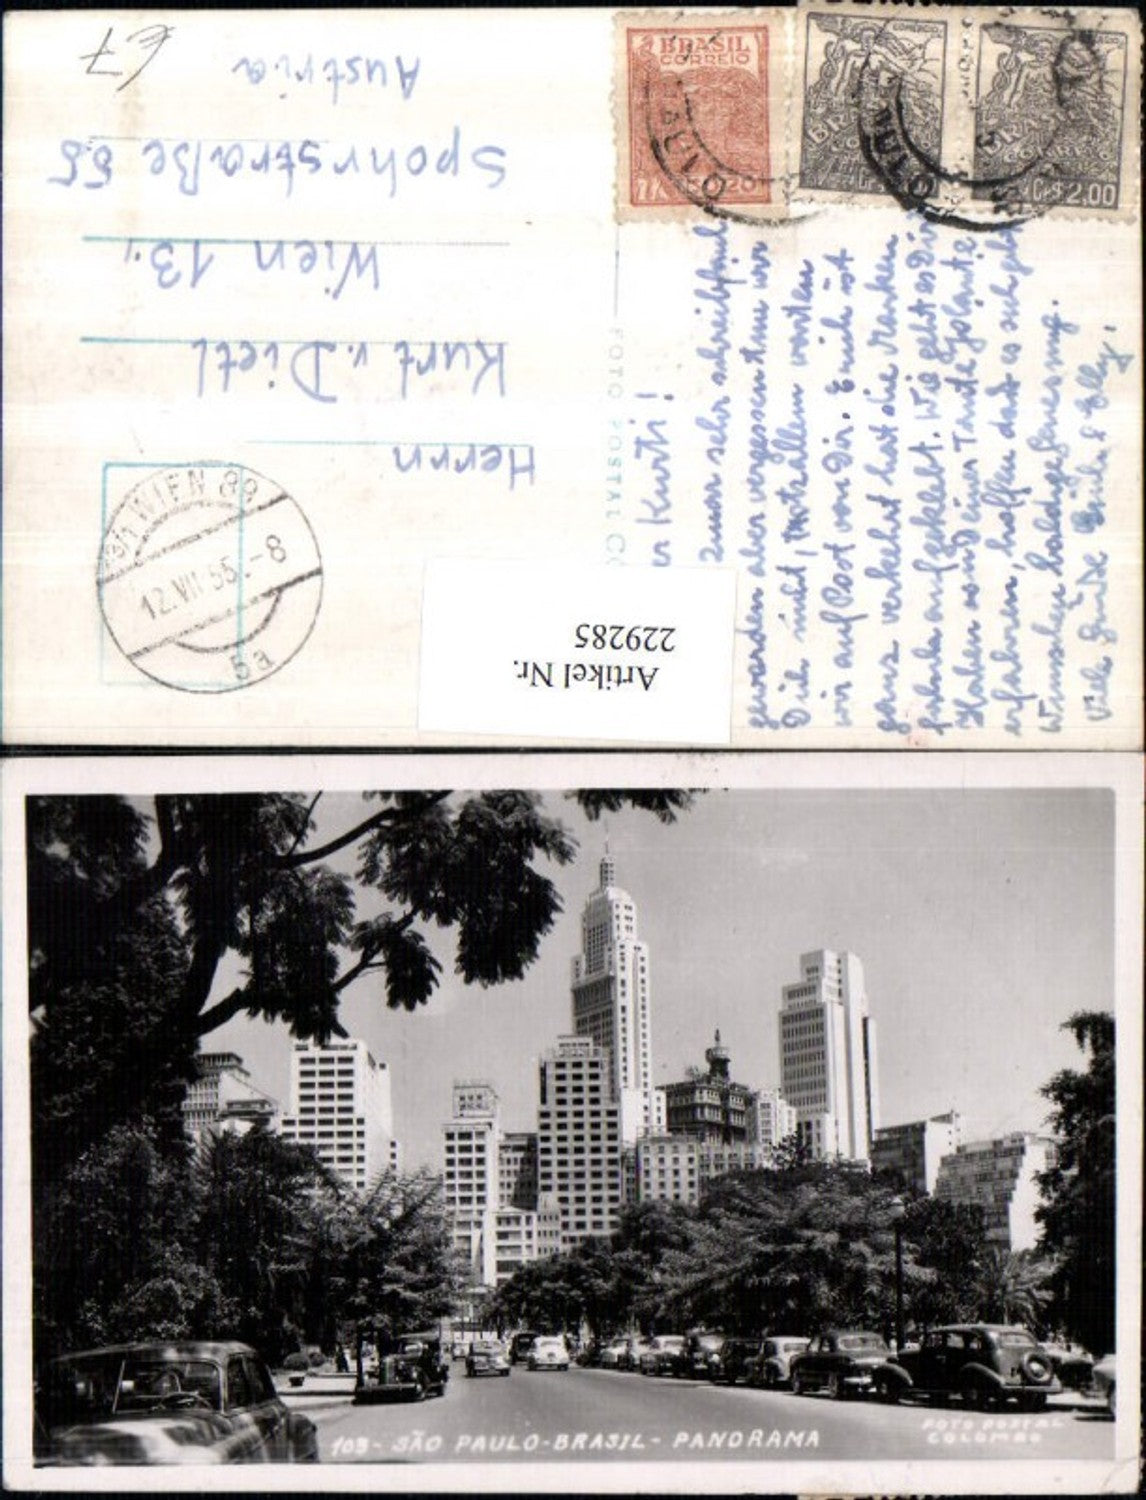 € 7
BRASIL
CORREIO
COMERCIO
BRASIL
CORREIO
Cr$2,00
FOTO POSTAL CO
Kurti!
zwar sehr schreibfaul
geworden aber vergessen tun wir
Dich nicht, vor allem warten
wir auf Post von Dir. Erich ist
ganz verkehrt hat die Marken
aufgeklebt. Wie geht es Dir
Haben von Deiner Tante Jolante
erfahren, hoffen daß es sich gibt
Wünschen baldige Genesung.
Viele Grüße &
Herrn
Kurt v. Dietl
Wien 13.,
Spohrstraße
Austria
WIEN 89
12.VII.55.-8
5a
Artikel Nr.
229285
103 - SÃO PAULO - BRASIL - PANORAMA
FOTO POSTAL
COLOMBO